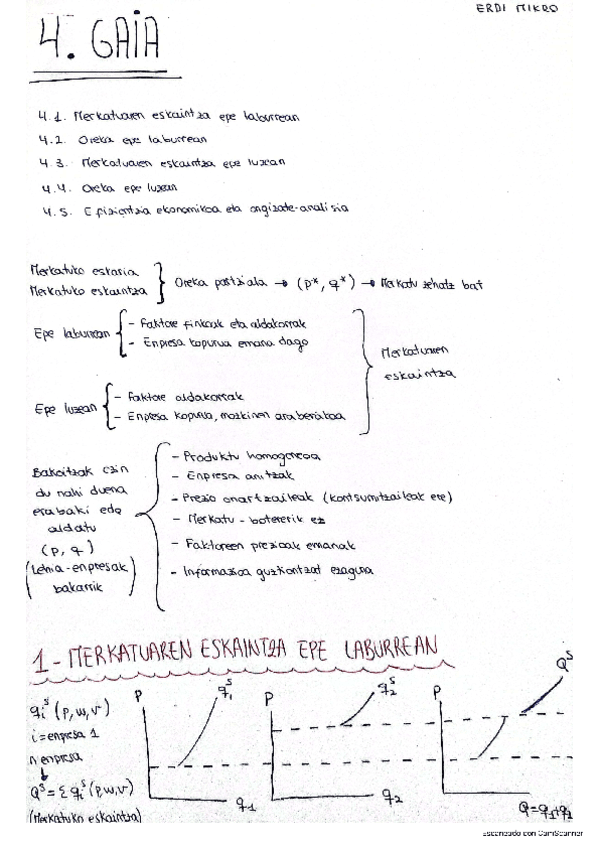 ERDI MIKRO
4. GAIA
4.1. Merkatuaren eskaintza epe laburrean
4.2. Oreka epe laburrean
4.3. Merkatuaren eskaintza epe luzean
4.4. Oreka epe luzean
4.5. Efizientzia ekonomikoa eta ongizate-analisia
Merkatuko eskaria
Merkatuko eskaintza
Oreka partziala → (p*, q*) → Merkatu zehatz bat
Epe laburrean
- Faktore finkoak eta aldakorrak
- Enpresa kopurua emana dago
Epe luzean
- Faktore aldakorrak
- Enpresa kopurua, mozkinen araberakoa
Merkatuaren
eskaintza
Bakoitzak ezin
du nahi duena
erabaki edo
aldatu
(p, q)
(Lehia-enpresak
bakarrik)
- Produktu homogeneoa
- Enpresa anitzak
- Prezio onartzaileak (kontsumitzaileak ere)
- Merkatu-botererik ez
- Faktoreen prezioak emanak
- Informazioa guztiontzat ezaguna
1- MERKATUAREN ESKAINTZA EPE LABURREAN
qiˢ (p, w, v)
i = enpresa 1
n enpresa
↓
Qˢ = Σ qiˢ (p, w, v)
(Merkatuko eskaintza)
P
q₁ˢ
q₁
P
q₂ˢ
q₂
P
Qˢ
Q=q₁+q₂
Escaneado con CamScanner